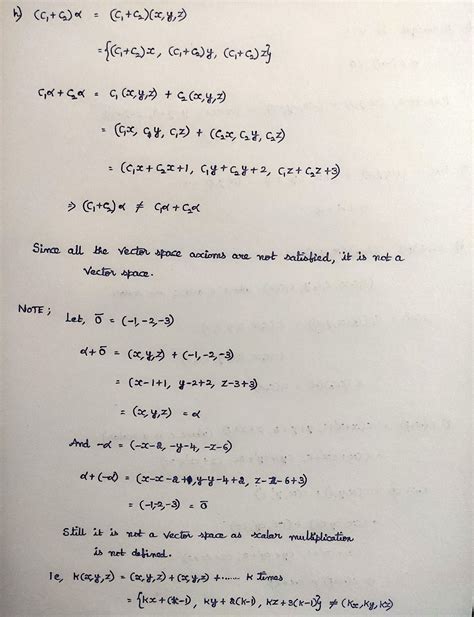 h) (C₁+C₂)α = (C₁+C₂)(x,y,z)
= {(C₁+C₂)x, (C₁+C₂)y, (C₁+C₂)z}
C₁α+C₂α = C₁(x,y,z) + C₂(x,y,z)
= (C₁x, C₁y, C₁z) + (C₂x, C₂y, C₂z)
= (C₁x+C₂x+1, C₁y+C₂y+2, C₁z+C₂z+3)
⇒ (C₁+C₂)α ≠ C₁α+C₂α
Since all the vector space axioms are not satisfied, it is not a
vector space.
NOTE; Let, 0̅ = (-1,-2,-3)
α+0̅ = (x,y,z) + (-1,-2,-3)
= (x-1+1, y-2+2, z-3+3)
= (x,y,z) = α
And -α = (-x-2, -y-4, -z-6)
α+(-α) = (x-x-2+1, y-y-4+2, z-z-6+3)
= (-1,-2,-3) = 0̅
Still it is not a vector space as scalar multiplication
is not defined.
Ie, K(x,y,z) = (x,y,z) + (x,y,z) + ....... K times
= {Kx+(K-1), Ky+2(K-1), Kz+3(K-1)} ≠ (Kx,Ky,Kz)